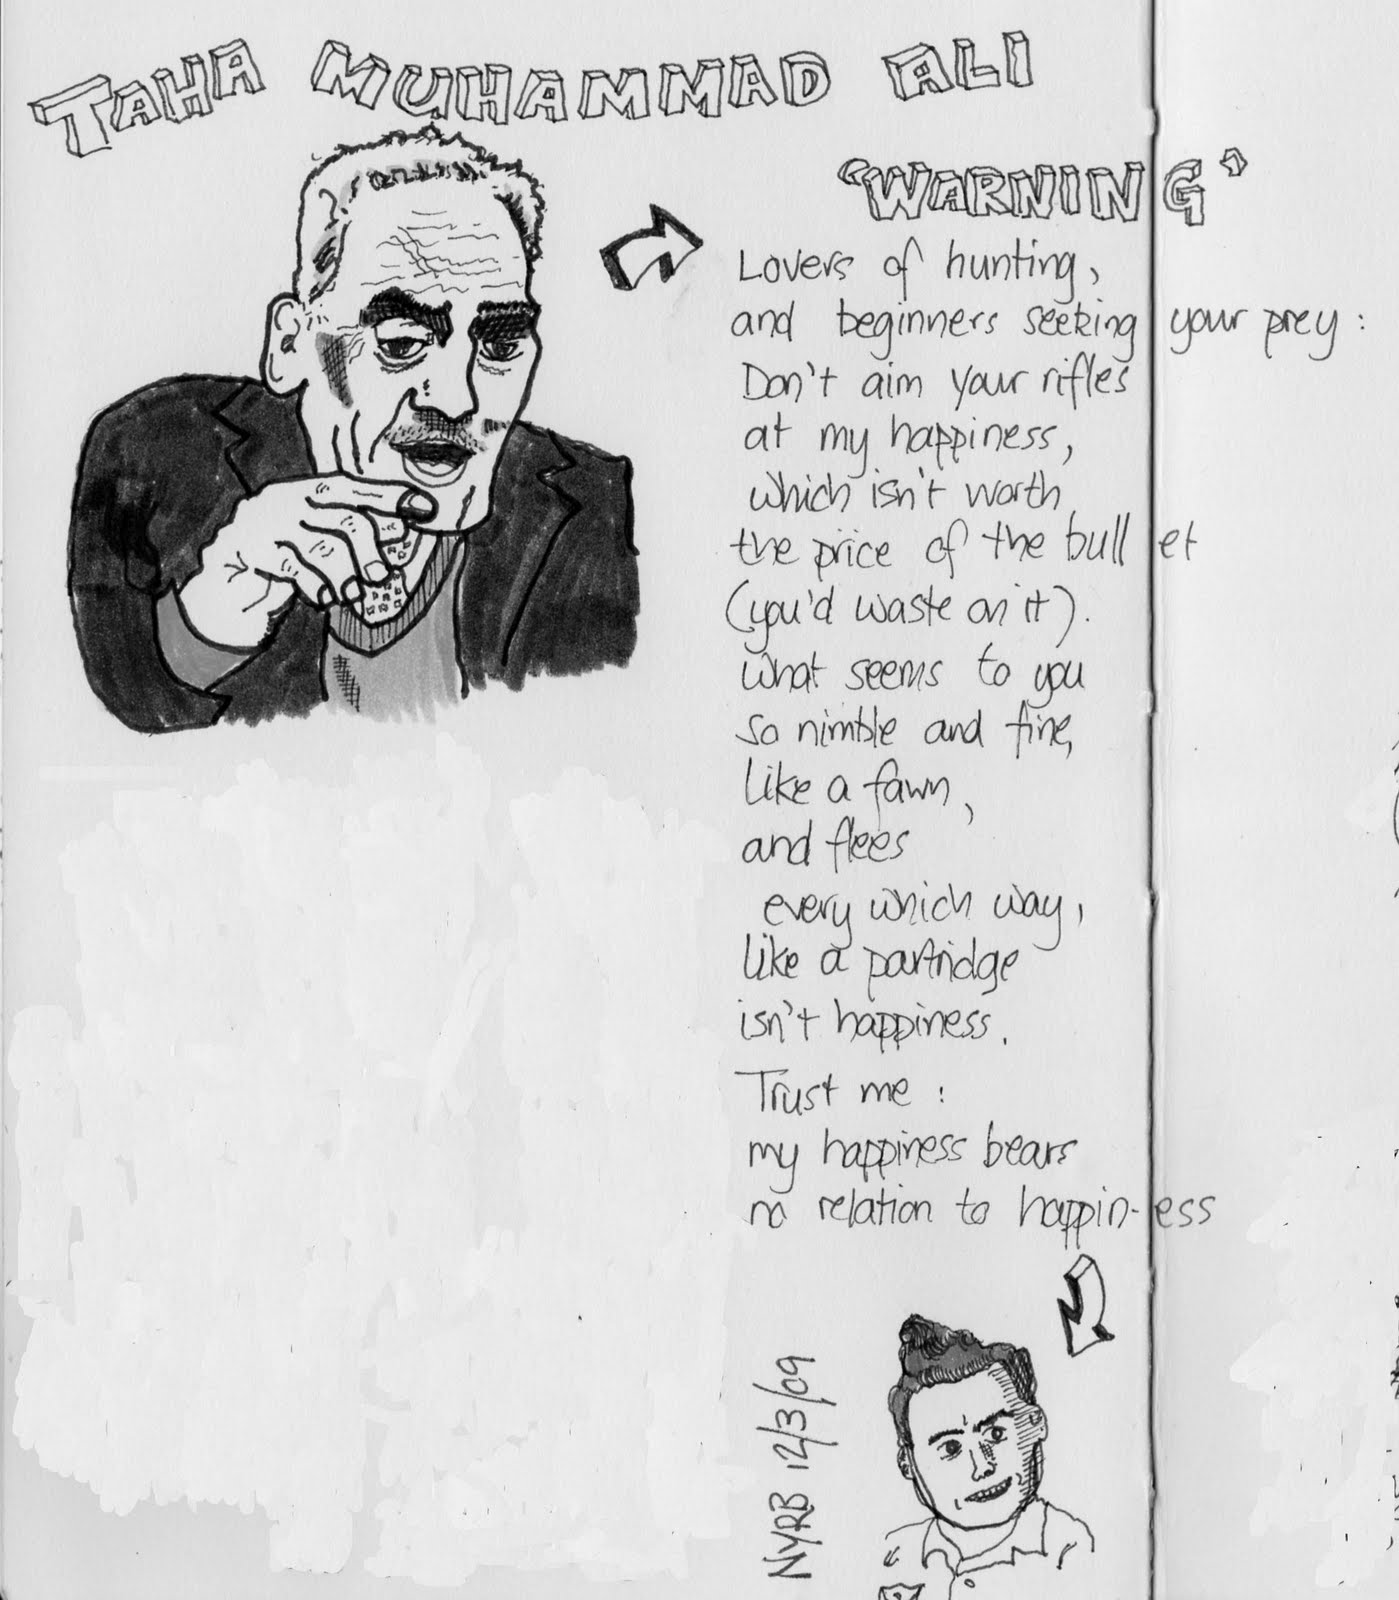 TAHA MUHAMMAD ALI
'WARNING'
Lovers of hunting,
and beginners seeking your prey :
Don't aim your rifles
at my happiness,
which isn't worth
the price of the bullet
(you'd waste on it).
What seems to you
so nimble and fine,
like a fawn,
and flees
every which way,
like a partridge
isn't happiness.
Trust me :
my happiness bears
no relation to happin-ess
NYRB 12/3/09